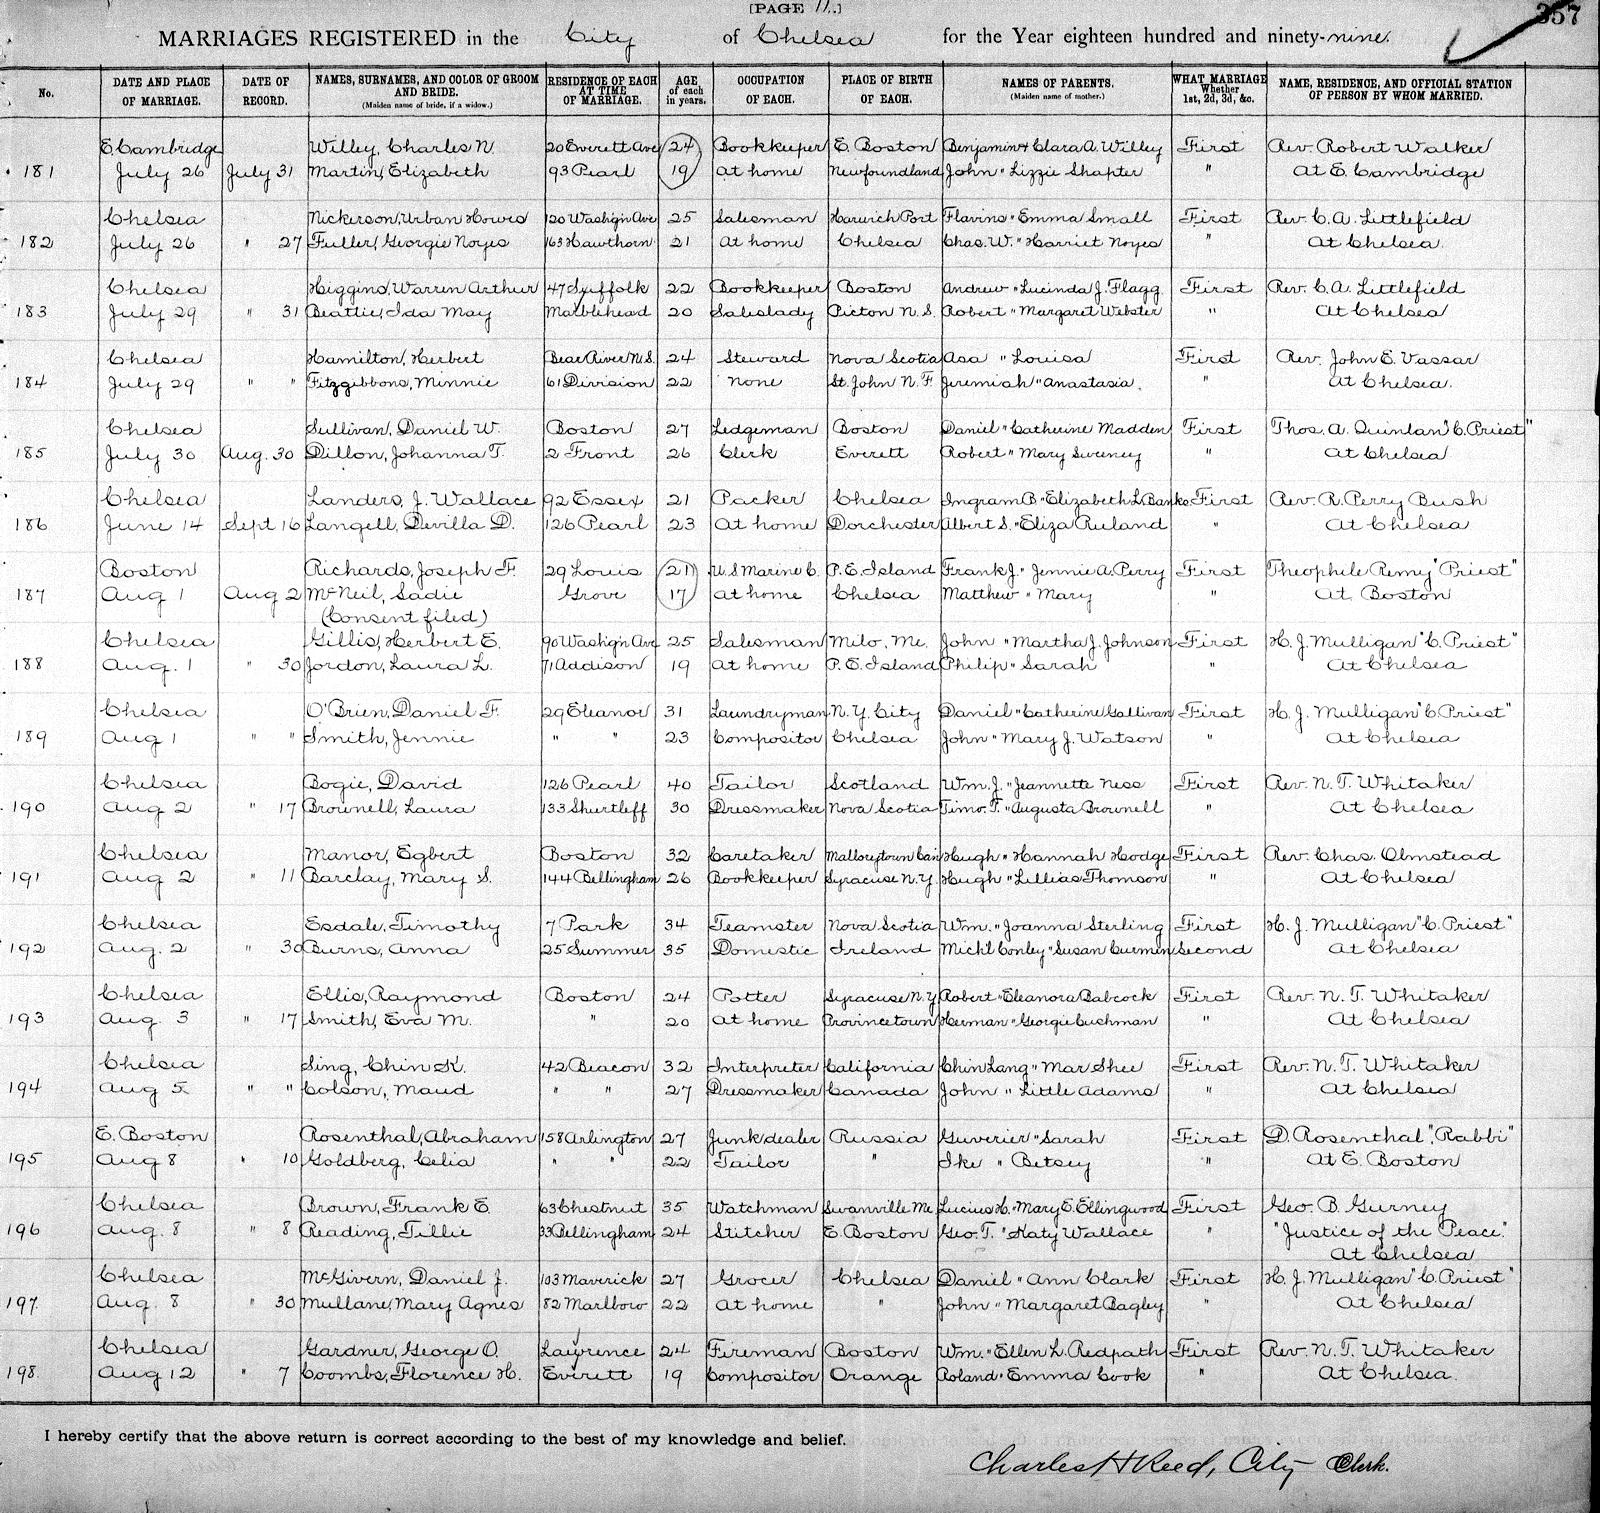 [PAGE 11.]
357
MARRIAGES REGISTERED in the City of Chelsea for the Year eighteen hundred and ninety-nine.
No. DATE AND PLACE OF MARRIAGE. DATE OF RECORD. NAMES, SURNAMES, AND COLOR OF GROOM AND BRIDE. (Maiden name of bride, if a widow.) RESIDENCE OF EACH AT TIME OF MARRIAGE. AGE of each in years. OCCUPATION OF EACH. PLACE OF BIRTH OF EACH. NAMES OF PARENTS. (Maiden name of mother.) WHAT MARRIAGE Whether 1st, 2d, 3d, &c. NAME, RESIDENCE, AND OFFICIAL STATION OF PERSON BY WHOM MARRIED.
E. Cambridge Willey, Charles N. 20 Everett Ave 24 Bookkeeper E. Boston Benjamin & Clara A. Willey First Rev. Robert Walker
181 July 26 July 31 Martin, Elizabeth 93 Pearl 19 At home Newfoundland John " Lizzie Shapter " At E. Cambridge
Chelsea Nickerson, Urban Howes 120 Washg'n Ave 25 Salesman Harwich Port Flavius " Emma Small First Rev. C. A. Littlefield
182 July 26 " 27 Fuller, Georgie Noyes 163 Hawthorn 21 At home Chelsea Chas. W. " Harriet Noyes " At Chelsea.
Chelsea Higgins, Warren Arthur 47 Suffolk 22 Bookkeeper Boston Andrew " Lucinda J. Flagg First Rev. C. A. Littlefield
183 July 29 " 31 Beattie, Ida May Marblehead 20 Saleslady Picton N. S. Robert " Margaret Webster " At Chelsea
Chelsea Hamilton, Herbert Bear River N. S. 24 Steward Nova Scotia Asa " Louisa First Rev. John E. Vassar
184 July 29 " " Fitzgibbons, Minnie 61 Division 22 None St. John N. F. Jeremiah " Anastasia. " At Chelsea.
Chelsea Sullivan, Daniel W. Boston 27 Ledgeman Boston Daniel " Catherine Madden First Thos. A. Quinlan "C. Priest"
185 July 30 Aug. 30 Dillon, Johanna T. 2 Front 26 Clerk Everett Robert " Mary Sweeney " At Chelsea
Chelsea Landers, J. Wallace 92 Essex 21 Packer Chelsea Ingram B " Elizabeth L. Banks First Rev. R. Perry Bush
186 June 14 Sept 16 Langell, Devilla D. 126 Pearl 23 At home Dorchester Albert S. " Eliza Ruland " At Chelsea
Boston Richards, Joseph F. 29 Louis 21 U. S. Marine C. P. E. Island Frank J. " Jennie A. Perry First Theophile Remy "Priest"
187 Aug 1 Aug 2 McNeil, Sadie Grove 17 At home Chelsea Matthew " Mary " At Boston
(Consent filed)
Chelsea Gillis, Herbert E. 90 Washg'n Ave 25 Salesman Milo, Me. John " Martha J. Johnson First H. J. Mulligan "C. Priest"
188 Aug. 1 " 30 Jordon, Laura L. 71 Addison 19 At home P. E. Island Philip " Sarah " At Chelsea
Chelsea O'Brien, Daniel F. 29 Eleanor 31 Laundryman N. Y. City Daniel " Catherine Gallivan First H. J. Mulligan "C. Priest"
189 Aug 1 " " Smith, Jennie " " 23 Compositor Chelsea John " Mary J. Watson " At Chelsea
Chelsea Bogie, David 126 Pearl 40 Tailor Scotland Wm. J. " Jeannette Ness First Rev. N. T. Whitaker
190 Aug 2 " 17 Brownell, Laura 133 Shurtleff 30 Dressmaker Nova Scotia Timo. T. " Augusta Brownell " At Chelsea
Chelsea Manor, Egbert Boston 32 Caretaker Malloreytown Can Hugh " Hannah Hodge First Rev. Chas. Olmstead
191 Aug 2 " 11 Barclay, Mary S. 144 Bellingham 26 Bookkeeper Syracuse N. Y. Hugh " Lillias Thomson " At Chelsea
Chelsea Esdale, Timothy 7 Park 34 Teamster Nova Scotia Wm. " Joanna Sterling First H. J. Mulligan "C. Priest"
192 Aug. 2 " 30 Burns, Anna 25 Summer 35 Domestic Ireland Mich'l Conley " Susan Curmin Second At Chelsea
Chelsea Ellis, Raymond Boston 24 Potter Syracuse N. Y Robert " Eleanora Babcock First Rev. N. T. Whitaker
193 Aug. 3 " 17 Smith, Eva M. " 20 At home Provincetown Herman " Georgie Cushman " At Chelsea
Chelsea Sing, Chin K. 42 Beacon 32 Interpreter California Chin Lang " Mar Shee First Rev. N. T. Whitaker
194 Aug 5 " " Colson, Maud " " 27 Dressmaker Canada John " Little Adams " At Chelsea
E. Boston Rosenthal, Abraham 158 Arlington 27 Junk dealer Russia Guverier " Sarah First D. Rosenthal ", Rabbi"
195 Aug 8 " 10 Goldberg, Celia " " 22 Tailor " Ike " Betsey " At E. Boston
Chelsea Brown, Frank E. 63 Chestnut 35 Watchman Swanville Me Lucius H. " Mary E. Ellingwood First Geo. B. Gurney
196 Aug. 8 " 8 Reading, Tillie 33 Bellingham 24 Stitcher E. Boston Geo. T. " Katy Wallace " "Justice of the Peace."
At Chelsea
Chelsea McGivern, Daniel J. 103 Maverick 27 Grocer Chelsea Daniel " Ann Clark First H. J. Mulligan "C. Priest"
197. Aug. 8 " 30 Mullane, Mary Agnes 82 Marlboro 22 At home " John " Margaret Bagley " At Chelsea
Chelsea Gardner, George O. Lawrence 24 Fireman Boston Wm. " Ellen L. Redpath First Rev. N. T. Whitaker
198. Aug 12 " 7 Coombs, Florence H. Everett 19 Compositor Orange Roland " Emma Cook " At Chelsea.
I hereby certify that the above return is correct according to the best of my knowledge and belief.
Charles H Reed, City Clerk.